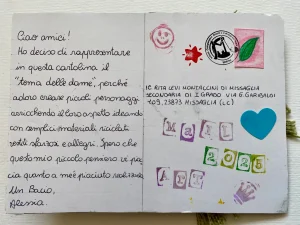 Ciao amici!
Ho deciso di rappresentare
in questa cartolina il
"tema delle dame", perché
adoro creare piccoli personaggi
arricchendo il loro aspetto ideandoli
con semplici materiali riciclati
resti sfarzosi e allegri. Spero che
questo mio piccolo pensiero vi piac-
cia quanto a me è piaciuto realizzarlo.
Un Bacio,
Alessia.
IC RITA LEVI MONTALCINI DI MISSAGLIA
SECONDARIA DI I GRADO VIA G. GARIBALDI
109, 23873 MISSAGLIA (LC)
MAIL
2025
ART